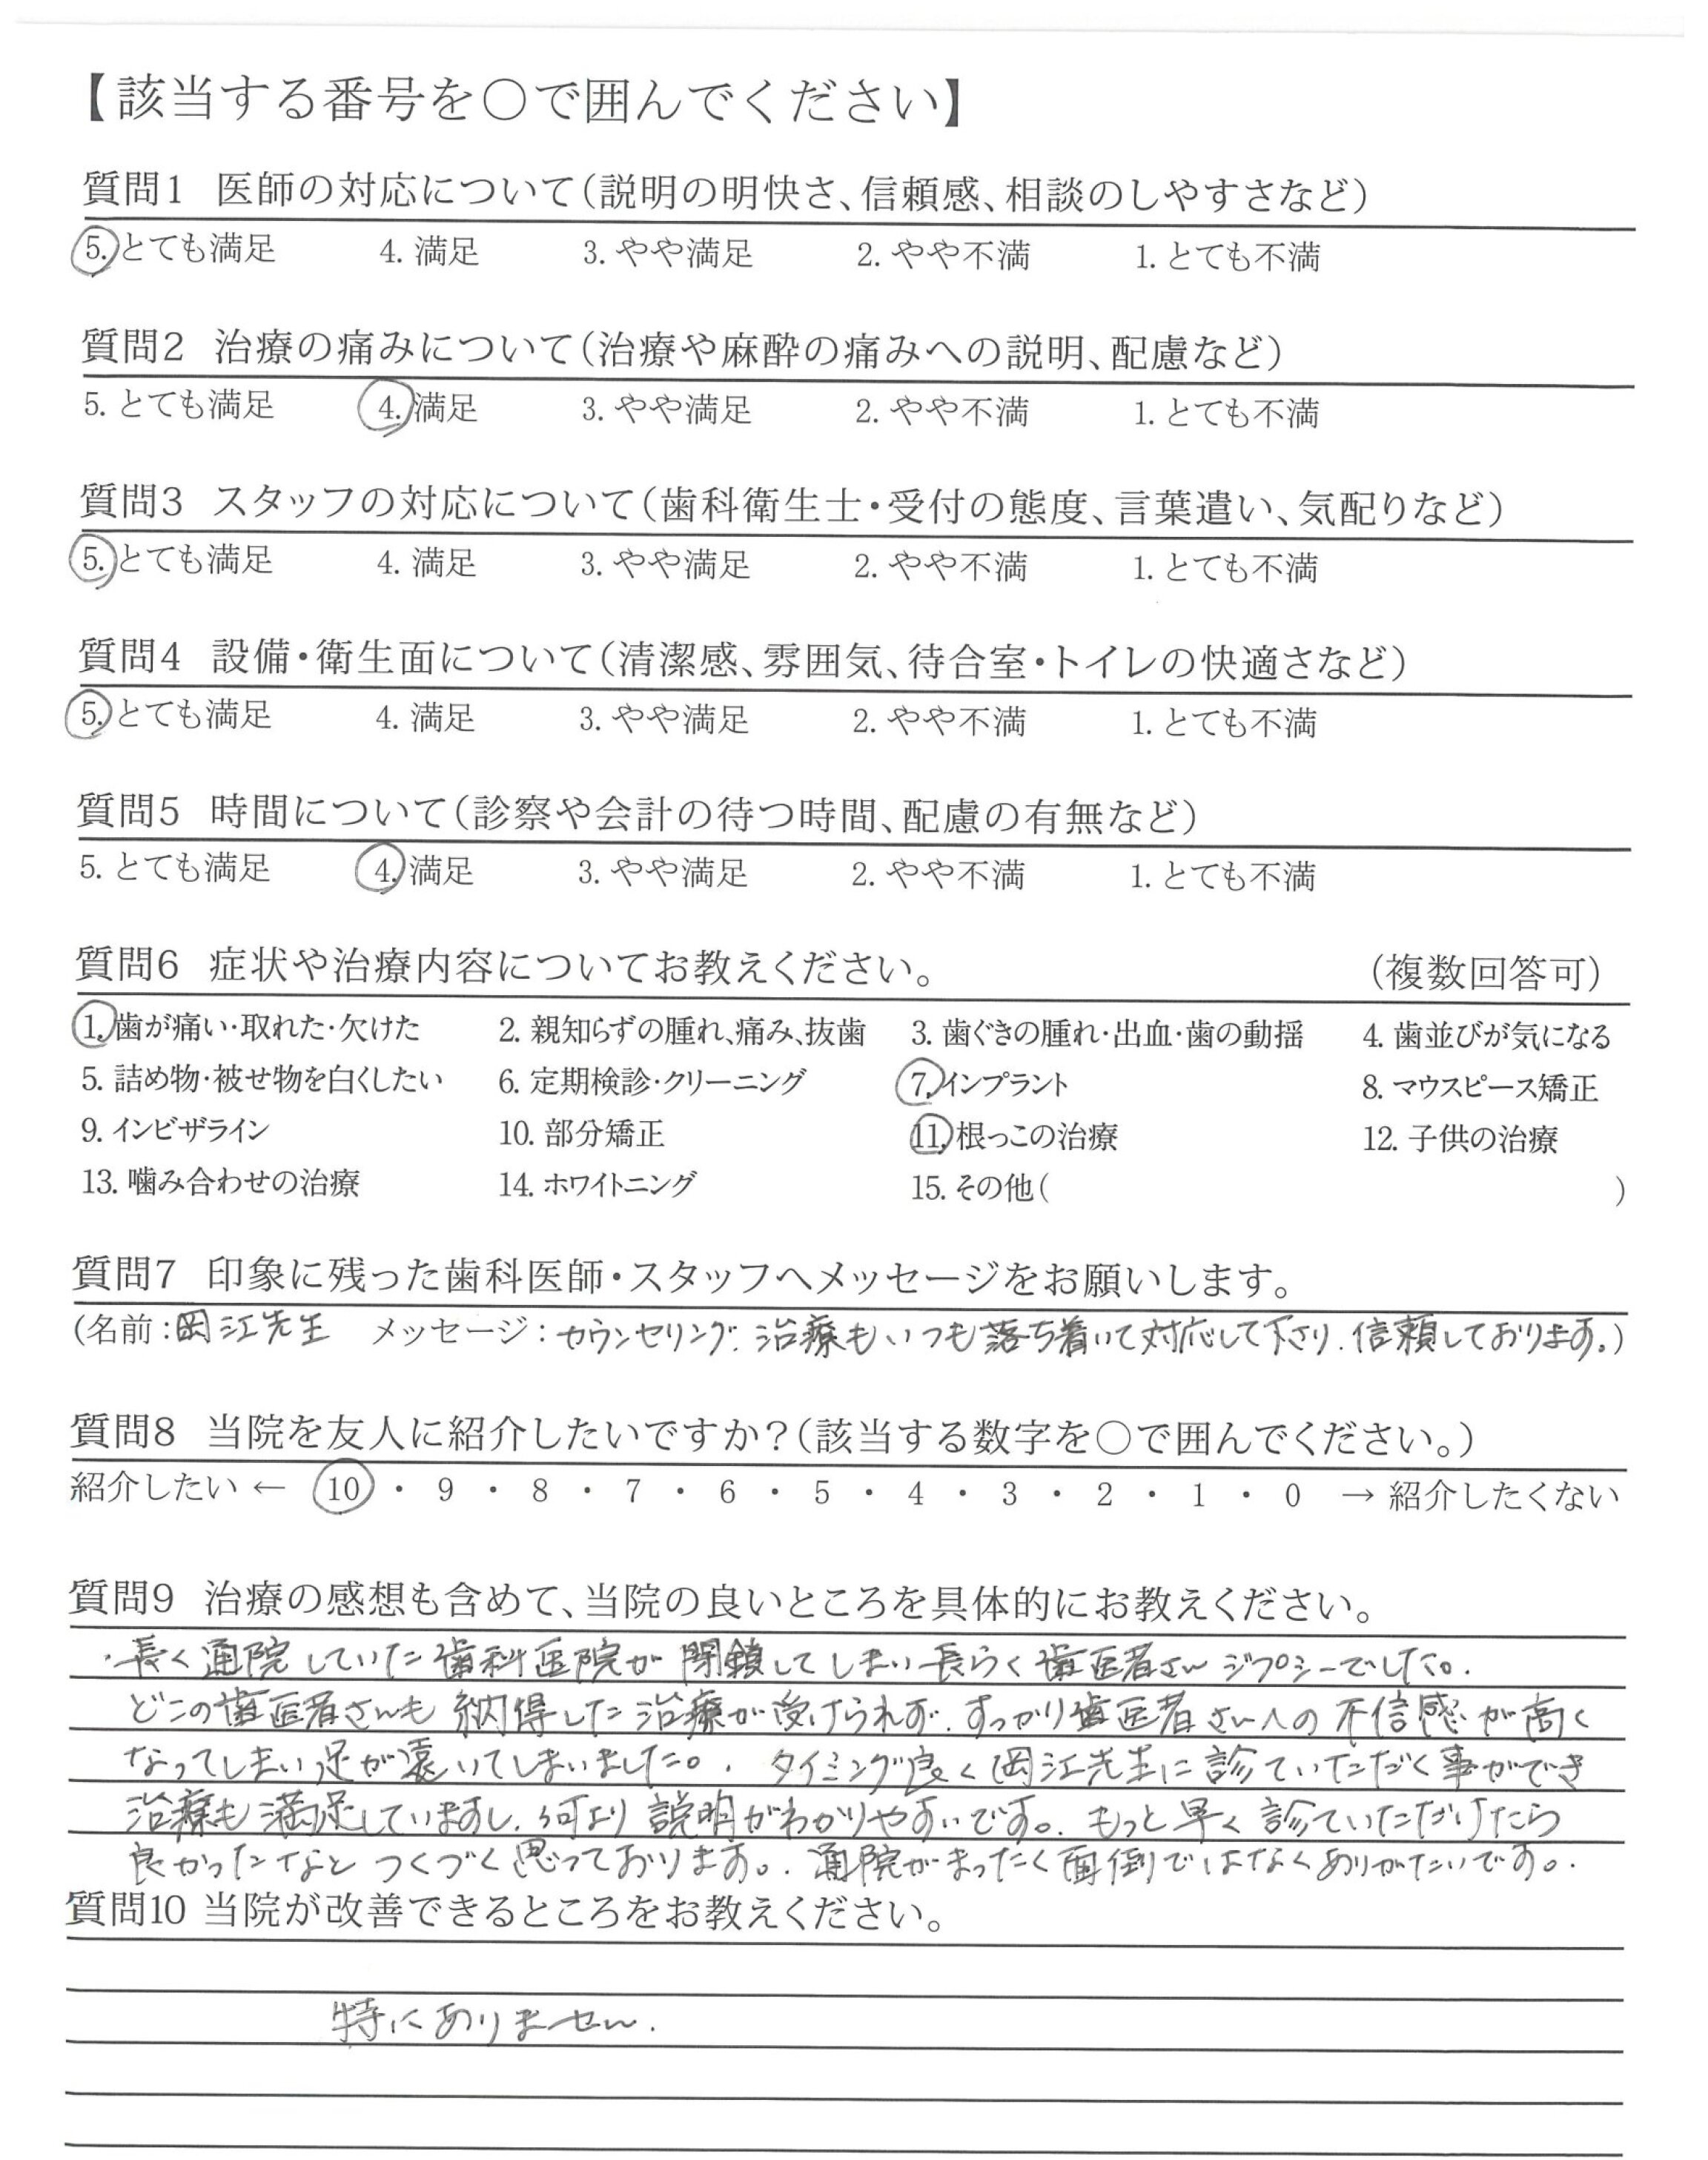 【該当する番号を○で囲んでください】
質問1 医師の対応について(説明の明快さ、信頼感、相談のしやすさなど)
5. とても満足 4. 満足 3. やや満足 2. やや不満 1. とても不満
質問2 治療の痛みについて(治療や麻酔の痛みへの説明、配慮など)
5. とても満足 4. 満足 3. やや満足 2. やや不満 1. とても不満
質問3 スタッフの対応について(歯科衛生士・受付の態度、言葉遣い、気配りなど)
5. とても満足 4. 満足 3. やや満足 2. やや不満 1. とても不満
質問4 設備・衛生面について(清潔感、雰囲気、待合室・トイレの快適さなど)
5. とても満足 4. 満足 3. やや満足 2. やや不満 1. とても不満
質問5 時間について(診察や会計の待つ時間、配慮の有無など)
5. とても満足 4. 満足 3. やや満足 2. やや不満 1. とても不満
質問6 症状や治療内容についてお教えください。 (複数回答可)
1. 歯が痛い・取れた・欠けた 2. 親知らずの腫れ、痛み、抜歯 3. 歯ぐきの腫れ・出血・歯の動揺 4. 歯並びが気になる
5. 詰め物・被せ物を白くしたい 6. 定期検診・クリーニング 7. インプラント 8. マウスピース矯正
9. インビザライン 10. 部分矯正 11. 根っこの治療 12. 子供の治療
13. 噛み合わせの治療 14. ホワイトニング 15. その他( )
質問7 印象に残った歯科医師・スタッフへメッセージをお願いします。
(名前:岡江先生 メッセージ:カウンセリング.治療もいつも落ち着いて対応して下さり.信頼しております。)
質問8 当院を友人に紹介したいですか?(該当する数字を○で囲んでください。)
紹介したい ← 10 ・ 9 ・ 8 ・ 7 ・ 6 ・ 5 ・ 4 ・ 3 ・ 2 ・ 1 ・ 0 → 紹介したくない
質問9 治療の感想も含めて、当院の良いところを具体的にお教えください。
・長く通院していた歯科医院が閉鎖してしまい長らく歯医者さんジプシーでした。
どこの歯医者さんも納得した治療が受けられず.すっかり歯医者さんへの不信感が高く
なってしまい足が遠いてしまいました。.タイミング良く岡江先生に診ていただく事ができ
治療も満足していますし.何より説明がわかりやすいです。.もっと早く診ていただけたら
良かったなとつくづく思っております。.通院がまったく面倒ではなくありがたいです。.
質問10 当院が改善できるところをお教えください。
特にありません.